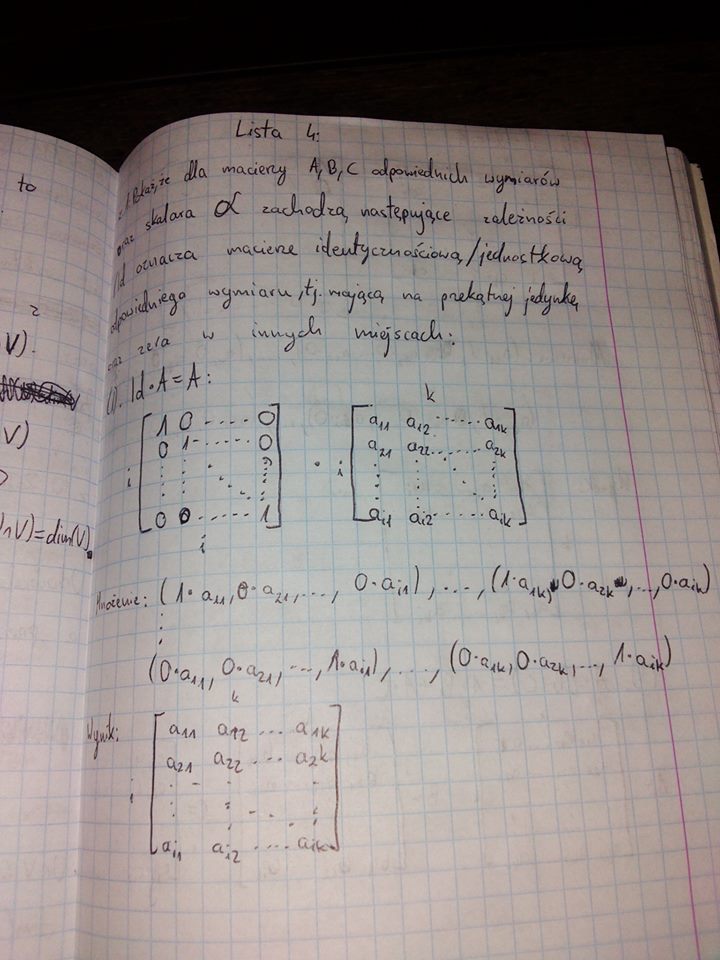 to
z
V).
V)
∩V)=dim(V).
Lista 4:
z 1. Pokaż, że dla macierzy A, B, C odpowiednich wymiarów
oraz skalara α zachodzą następujące zależności
Id oznacza macierz identycznościową/jednostkową
odpowiedniego wymiaru, tj. mającą na przekątnej jedynkę
oraz zera w innych miejscach:
(1). Id · A = A:
k
i [ 1 0 ---- 0 ] · i [ a11 a12 ------ a1k ]
[ 0 1 ---- 0 ] [ a21 a22 ------ a2k ]
[ 0 0 ------ 1 ] [ ai1 ai2 ------ aik ]
i
Mnożenie: (1·a11, 0·a21, ..., 0·ai1), ..., (1·a1k, 0·a2k, ..., 0·aik)
(0·a11, 0·a21, ..., 1·ai1), ...., (0·a1k, 0·a2k, ..., 1·aik)
k
Wynik: [ a11 a12 ... a1k ]
[ a21 a22 ... a2k ]
i
[ ai1 ai2 .... aik ]